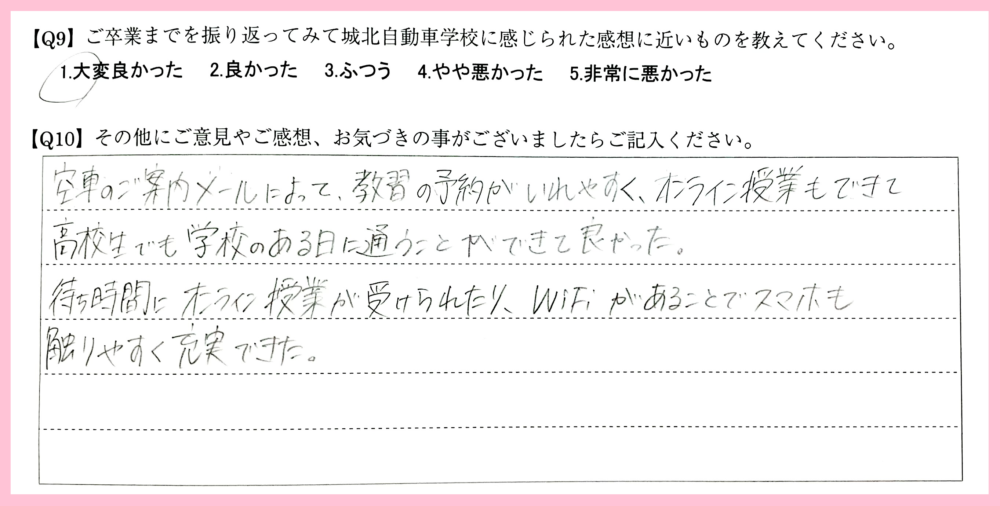 【Q9】ご卒業までを振り返ってみて城北自動車学校に感じられた感想に近いものを教えてください。
1.大変良かった 2.良かった 3.ふつう 4.やや悪かった 5.非常に悪かった
【Q10】その他にご意見やご感想、お気づきの事がございましたらご記入ください。
空車のご案内メールによって、教習の予約がいれやすく、オンライン授業もできて
高校生でも学校のある日に通うことができて良かった。
待ち時間に オンライン授業が受けられたり、WiFiがあることでスマホも
触りやすく充実できた。